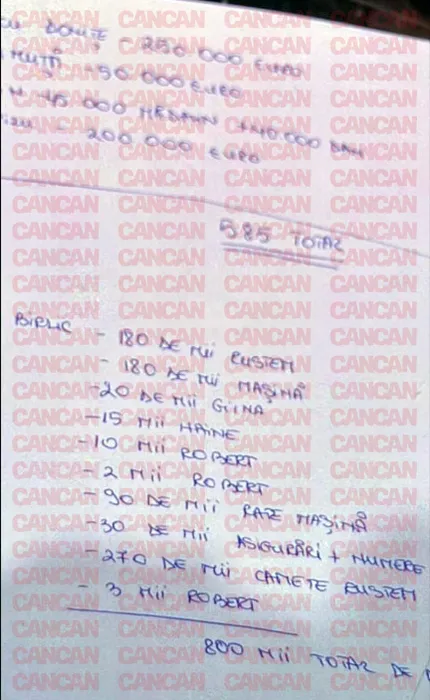 DONIȚĂ - 250 000 EURO
MUȚĂ - 50 000 EURO
45 000 + 40 000 DAN
- 200 000 EURO
585 TOTAL
BIRLIC - 180 DE MII RUSTEM
- 180 DE MII MAȘINĂ
- 20 DE MII GIINĂ
- 15 MII HAINE
- 10 MII ROBERT
- 2 MII ROBERT
- 90 DE MII RATE MAȘINĂ
- 30 DE MII ASIGURĂRI + NUMERE
- 270 DE MII CAMETE RUSTEM
- 3 MII ROBERT
800 MII TOTAL DE